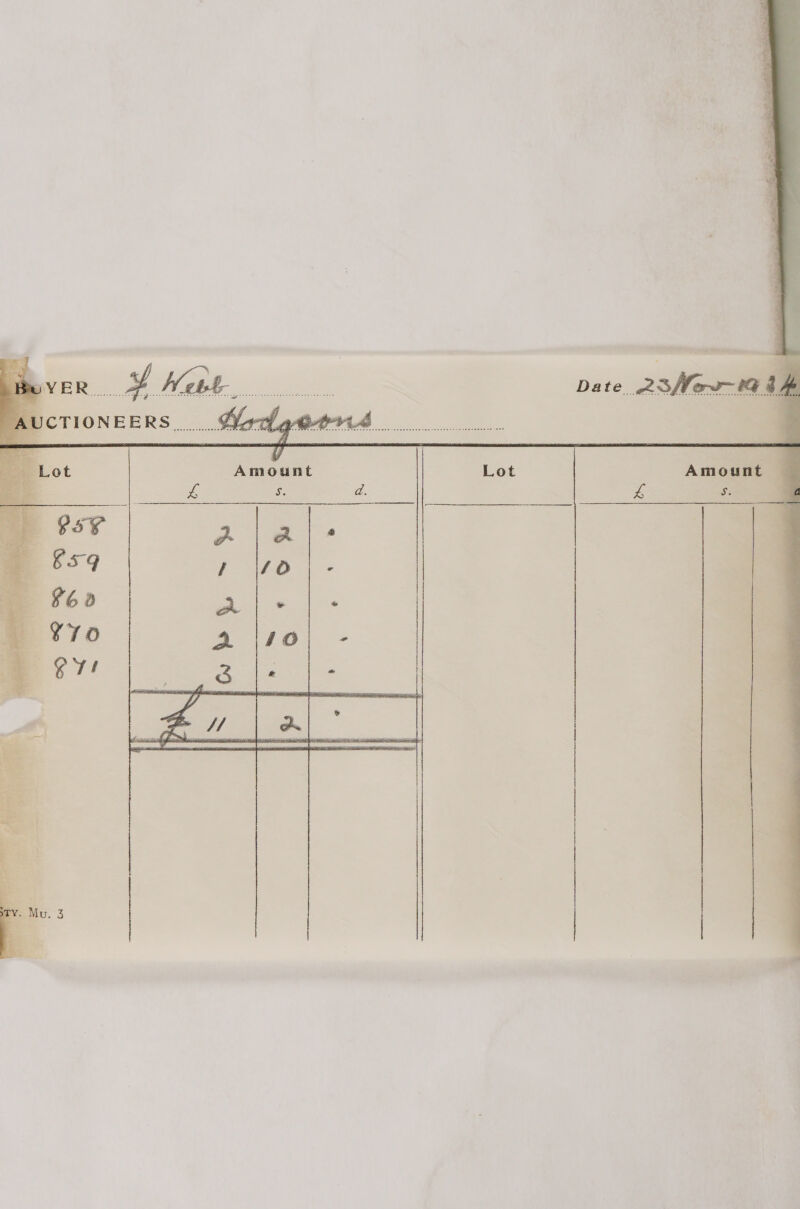 BUYER F. Webb Date 23 Nov 19
AUCTIONEERS Hodgsons
Lot Amount Lot Amount
£ s. d. £ s. d
858 2 2 -
859 1 10 -
860 2 - -
870 2 10 -
871 3 - -
£ 11 2 -
STY. MU. 3